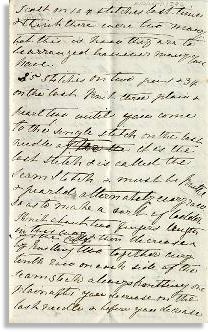 I cast on
think there were two many
but this is how they are to
be arranged however many you
have.
35 stitches on two pins & 34
on the last. Knit three plain &
purl two until you come
to the single stitch on the last
needle
last stitch & is called the
Seam Stitch & must be knitted
& purled alternately every row
so as to make a sort of ladder
Knit about two fingers length
in this way then decrease
by knitting two together every
tenth row on each side of the
seam stitch always knitting one
plain after you decrease on the
last needle & before you decrease